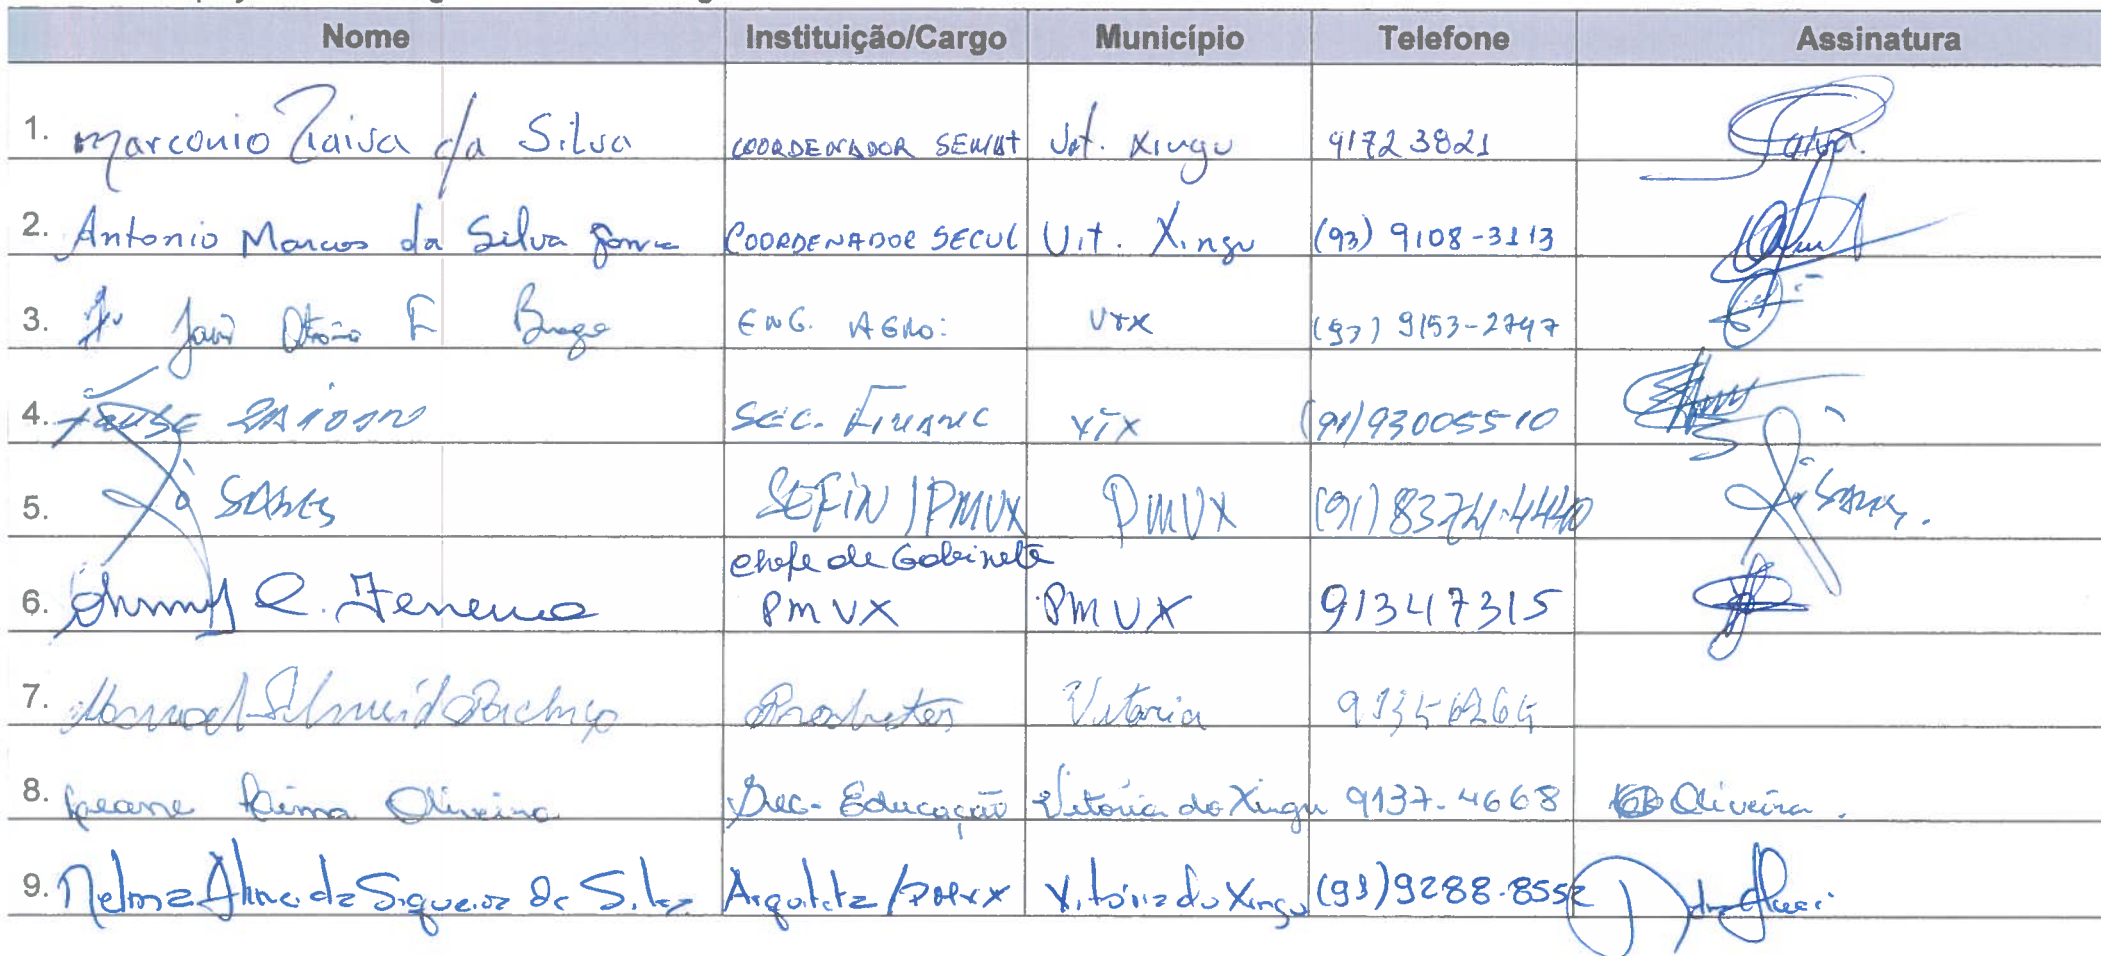 Nome Instituição/Cargo Município Telefone Assinatura
1. Marconio Paiva da Silva COORDENADOR SEMAT Vit. Xingu 91723821 Paiva.
2. Antonio Marcos da Silva COORDENADOR SECUL Vit. Xingu (93) 9108-3113
3. F. Braga ENG. AGRO: VTX (93) 9153-2797
4. SEC. FINANC VTX (91)93005510
5. Jô SOARES SEFIN/PMVX PMVX (91) 8374-4440 Jô Soares.
chefe de Gabinete
6. PMVX PMVX 91347315
7. Vitoria
8. Lima Oliveira Sec- Educação Vitória do Xingu 9137-4668 Oliveira.
9. Nelma Almeida Siqueira da Silva Arquiteta/PMVX Vitória do Xingu (93)9288-8552